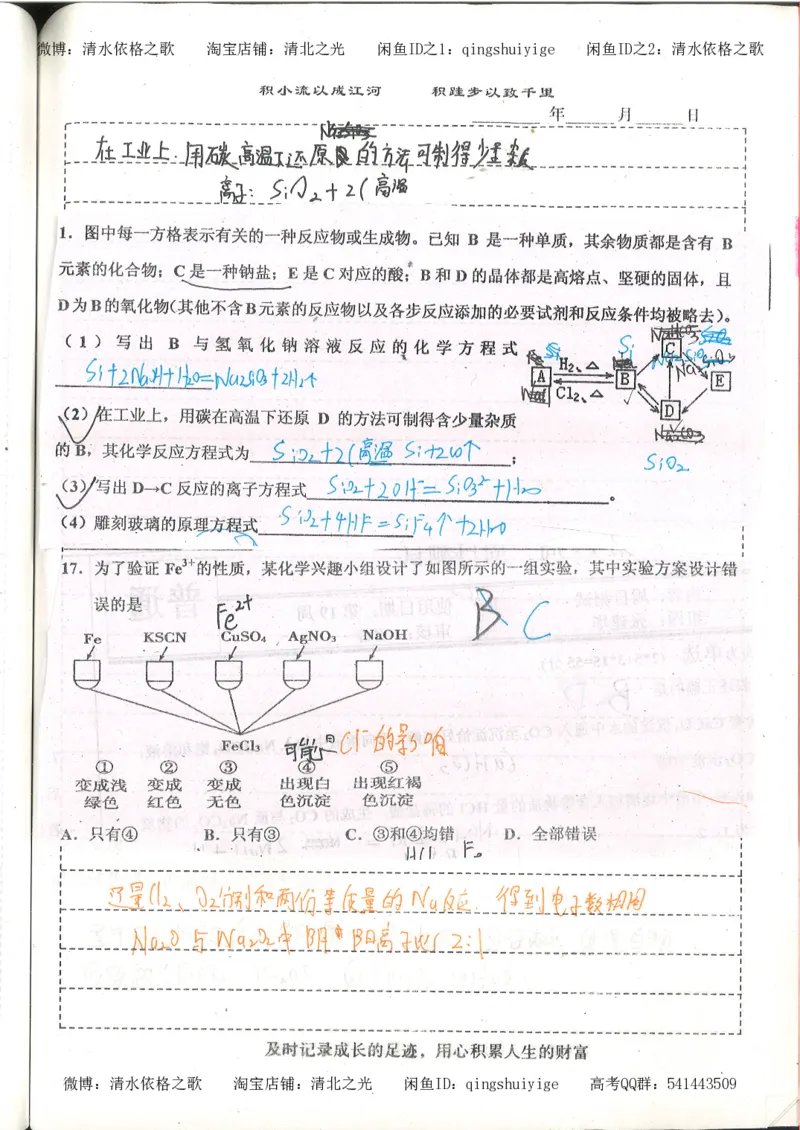 微博：清水依格之歌 淘宝店铺：清北之光 闲鱼ID之1：qingshuiyige 闲鱼ID之2：清水依格之歌
积小流以成江河 积跬步以致千里
年 月 日
在工业上.用碳高温下还原 的方法可制得少量杂质
离子：SiO₂+2C高温
1．图中每一方格表示有关的一种反应物或生成物。已知 B 是一种单质，其余物质都是含有 B
元素的化合物；C 是一种钠盐；E 是 C 对应的酸；B 和 D 的晶体都是高熔点、坚硬的固体，且
D 为 B 的氧化物(其他不含 B 元素的反应物以及各步反应添加的必要试剂和反应条件均被略去)。
（1）写出 B 与氢氧化钠溶液反应的化学方程式
Si+2NaOH+H₂O=Na₂SiO₃+2H₂↑
Si
A H₂、△ Cl₂、△ B C D E
SiO₂
（2）在工业上，用碳在高温下还原 D 的方法可制得含少量杂质
的 B，其化学反应方程式为 SiO₂+2C高温Si+2CO↑；
（3）写出 D→C 反应的离子方程式 SiO₂+2OH⁻=SiO₃²⁻+H₂O。
（4）雕刻玻璃的原理方程式 SiO₂+4HF=SiF₄↑+2H₂O
17．为了验证 Fe³⁺的性质，某化学兴趣小组设计了如图所示的一组实验，其中实验方案设计错
误的是
Fe²⁺ B C
Fe KSCN CuSO₄ AgNO₃ NaOH
FeCl₃ 可能是Cl⁻的影响
① ② ③ ④ ⑤
变成浅 变成 变成 出现白 出现红褐
绿色 红色 无色 色沉淀 色沉淀
A．只有④ B．只有③ C．③和④均错 D．全部错误
过量Cl₂、O₂分别和两份等质量的Na反应.得到电子数相同
Na₂O与Na₂O₂中阴 阳离子比 2:1
及时记录成长的足迹，用心积累人生的财富
微博：清水依格之歌 淘宝店铺：清北之光 闲鱼ID：qingshuiyige 高考QQ群：541443509